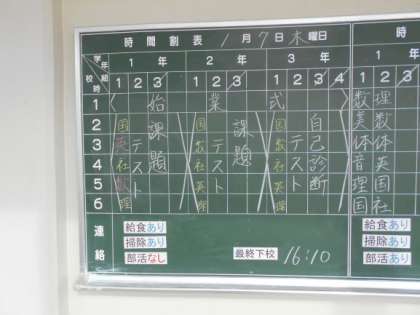 時間割表 1月7日 木曜日 時
学年組 校時 1年 2年 3年 1
1 2 3 1 2 3 1 2 3 4 1 2
1 始業式 数 理
2 国 課題テスト 国 課題テスト 国 自己診断テスト 美 数
3 英 数 数 体 体
4 社 社 社 音 英
5 数 英 英 理 国
6 理 理 理 国 社
連絡 給食あり 給食あり
掃除あり 掃除あり
部活なし 最終下校 16:10 部活あり